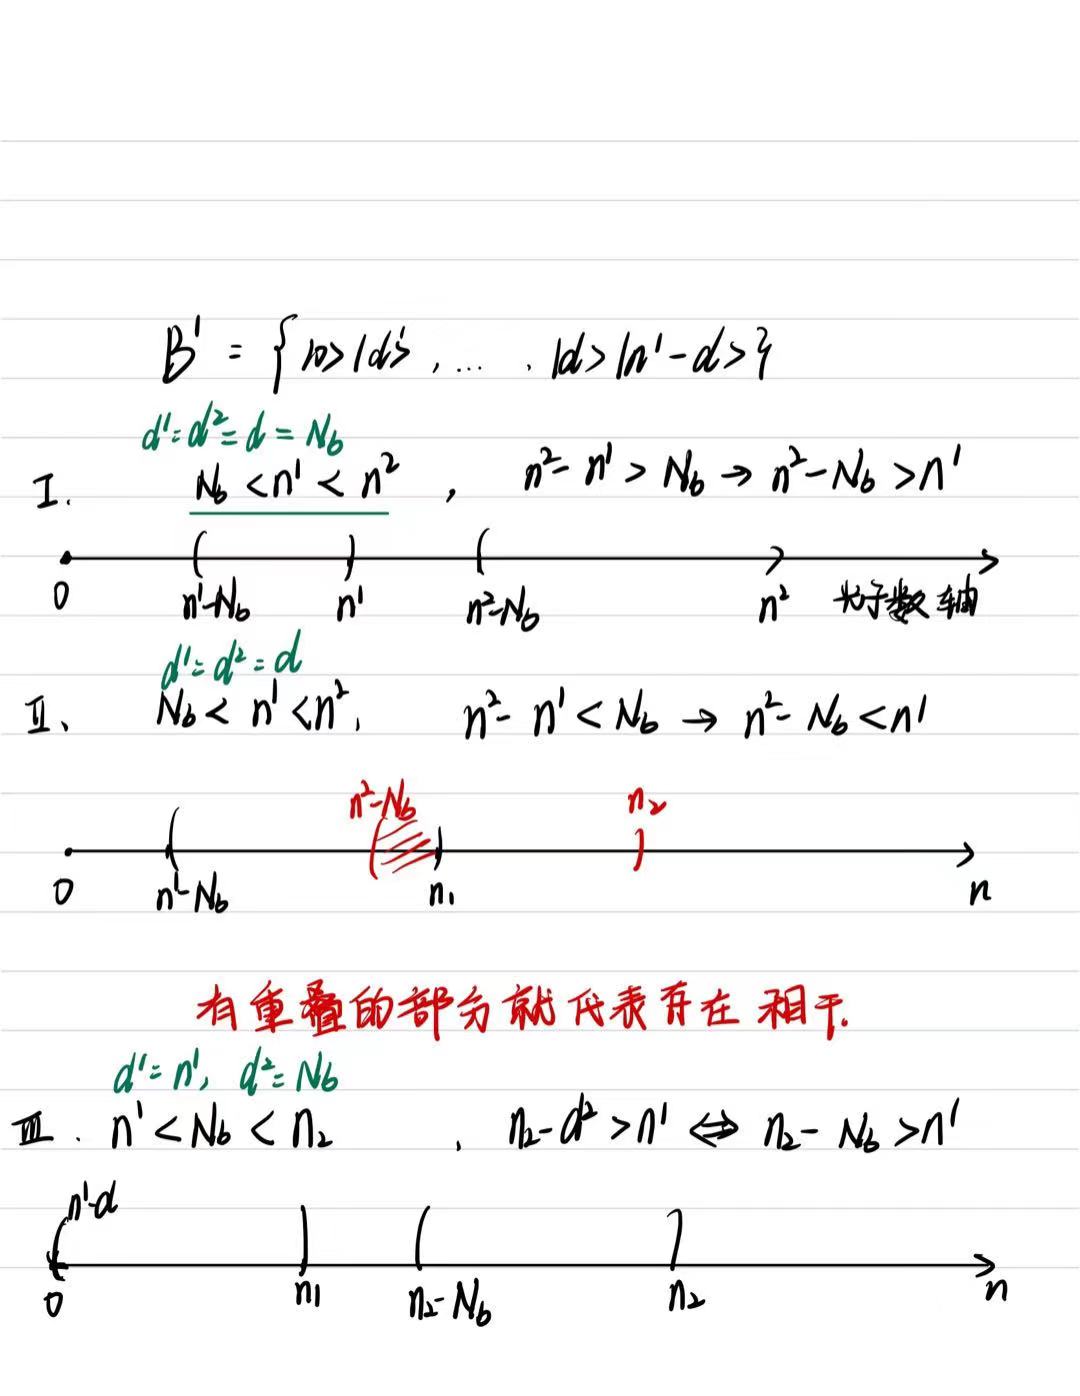 B' = { |0>|d'> , ... . |d>|n'-d>}
d'=d²=d=N_b
I. N_b<n'<n² , n²-n'>N_b→n²-N_b>n'
0 n'-N_b n' n²-N_b n² 光子数轴
d'=d²=d
II、 N_b<n'<n², n²-n'<N_b→n²-N_b<n'
n²-N_b n₂
0 n'-N_b n₁ n
有重叠的部分就代表存在相干.
d'=n', d²=N_b
III. n'<N_b<n₂ , n₂-d²>n'⇔n₂-N_b>n'
n'-d
0 n₁ n₂-N_b n₂ n